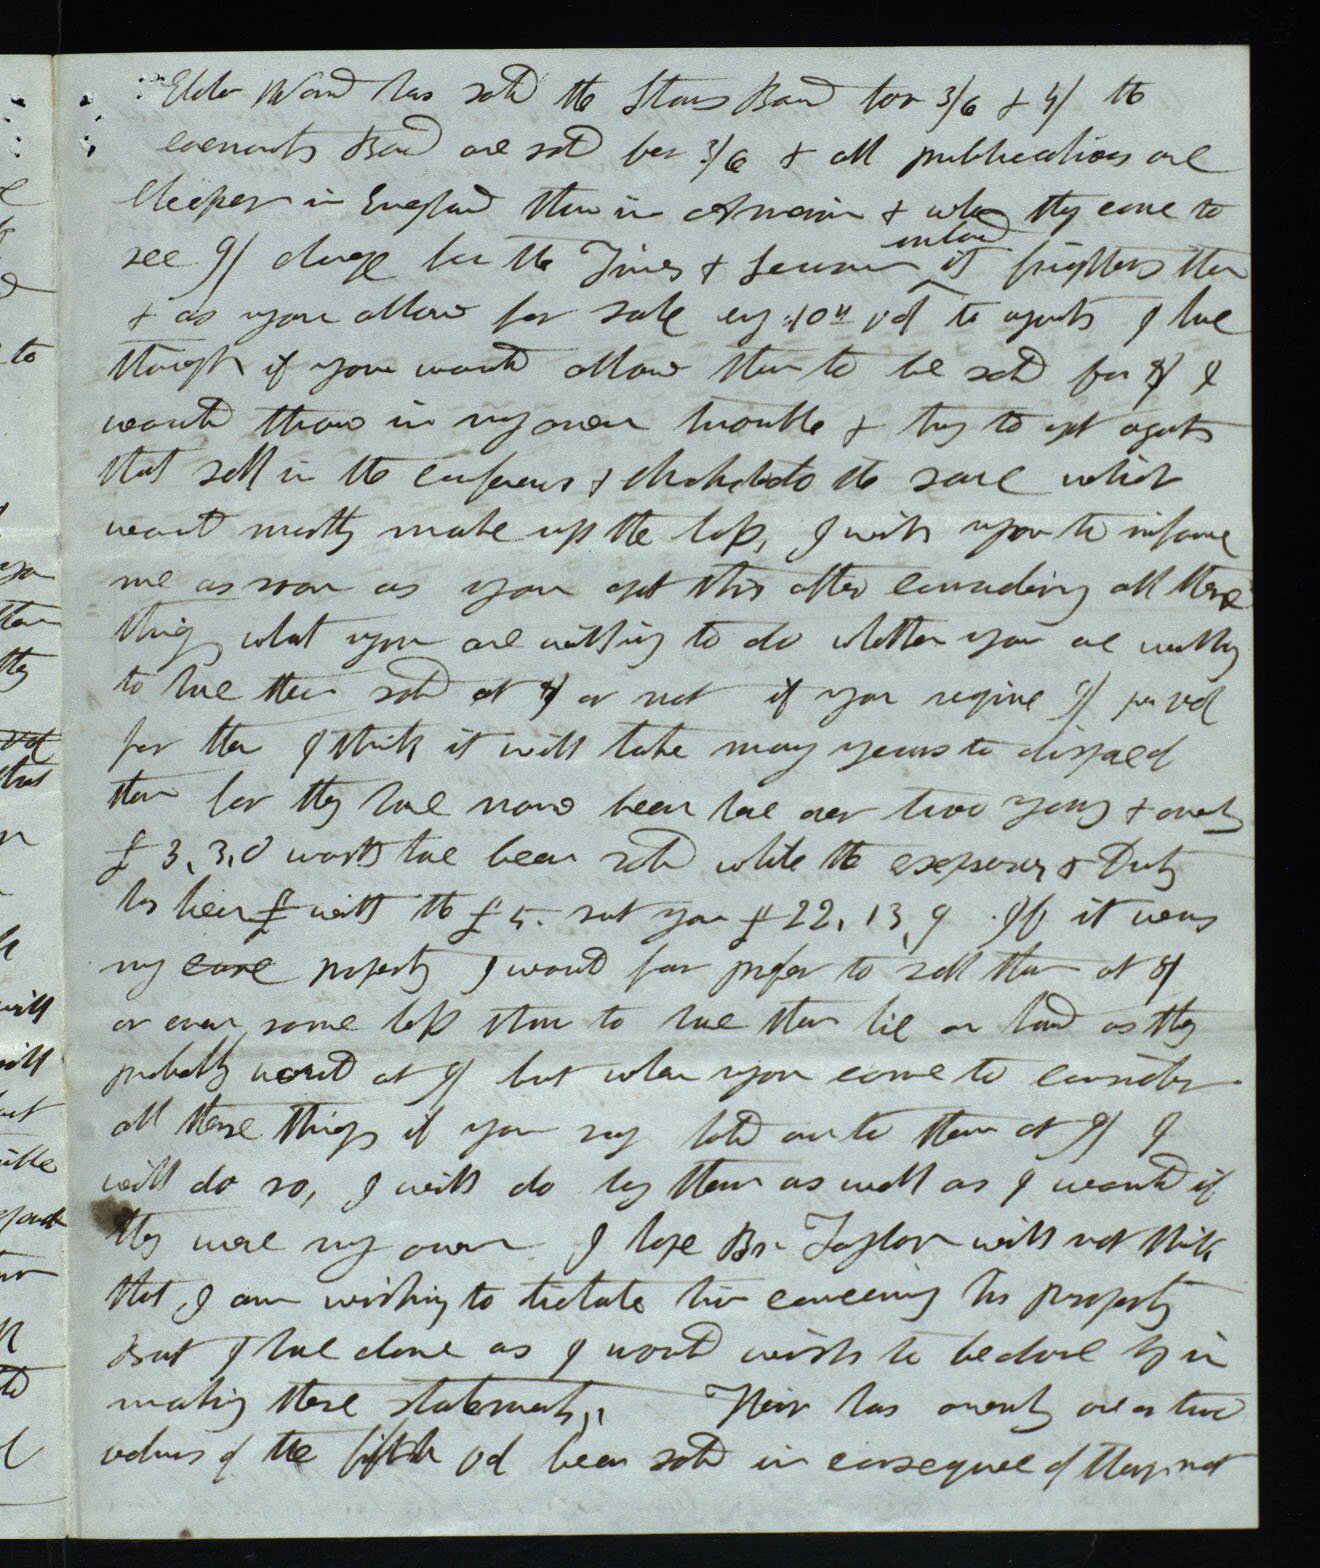 Elder Ward has sold the Stars Bound for 3/6 & 4/ the
covenants Bound are sold for 3/6 & all publications are
cheaper in England than in America & when they come to
see 9/ charge for the Times & Seasons unbound it frightens them
& as you allow for sale by 10 vol to agents I have
thought if you would allow them to be sold for 8/ I
would throw in my own trouble & try to get agents
that sell in the conferences & the same which
would mostly make up the loss, I wish you to inform
me as soon as you get this after considering all these
things what you are willing to do whether you are willing
to have them sold at 8/ or not if you require 9/ per vol
for them I think it will take many years to dispose of
them for they have now been here over two years & only
£3,3,0 worth have been sold while the expenses & Duty
has been £ with the £5. sent you £22,13,9. If it were
my case property I would far prefer to sell them at 8/
or even some less than to have them lie on hand as they
probably would at 9/ but when you come to consider
all these things if you say hold on to them at 9/ I
will do so, I will do by them as well as I would if
they were my own I hope Br Taylor will not think
that I am wishing to dictate him concerning his property
But I have done as I would wish to be done by in
making these statements,, Their has ownly over two
volums of the fifth vol been sold in consequence of their not